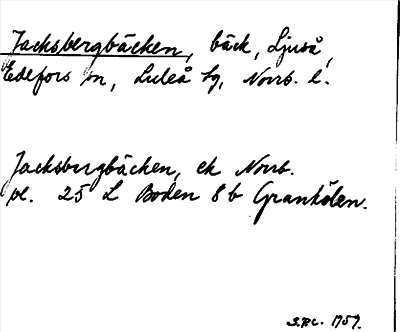 Jacksbergbäcken, bäck, Ljuså,
Edefors sn, Luleå tg, Norrb. l.
Jacksbergbäcken, ek Norrb.
bl. 25 L Boden 8 b Granhölen.
1959.